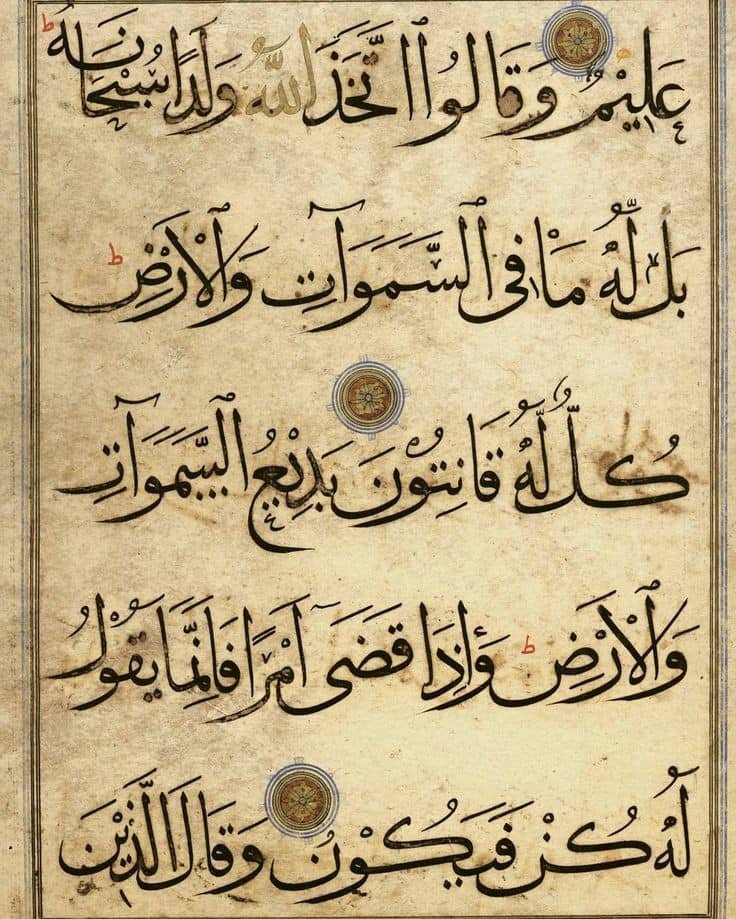 عَلِيمٌ وَقَالُوا اتَّخَذَ اللَّهُ وَلَدًا سُبْحَانَهُ ط
بَل لَّهُ مَا فِي السَّمَوَاتِ وَالْأَرْضِ ط
كُلٌّ لَّهُ قَانِتُونَ بَدِيعُ السَّمَوَاتِ
وَالْأَرْضِ ط وَإِذَا قَضَى أَمْرًا فَإِنَّمَا يَقُولُ
لَهُ كُنْ فَيَكُونُ وَقَالَ الَّذِينَ